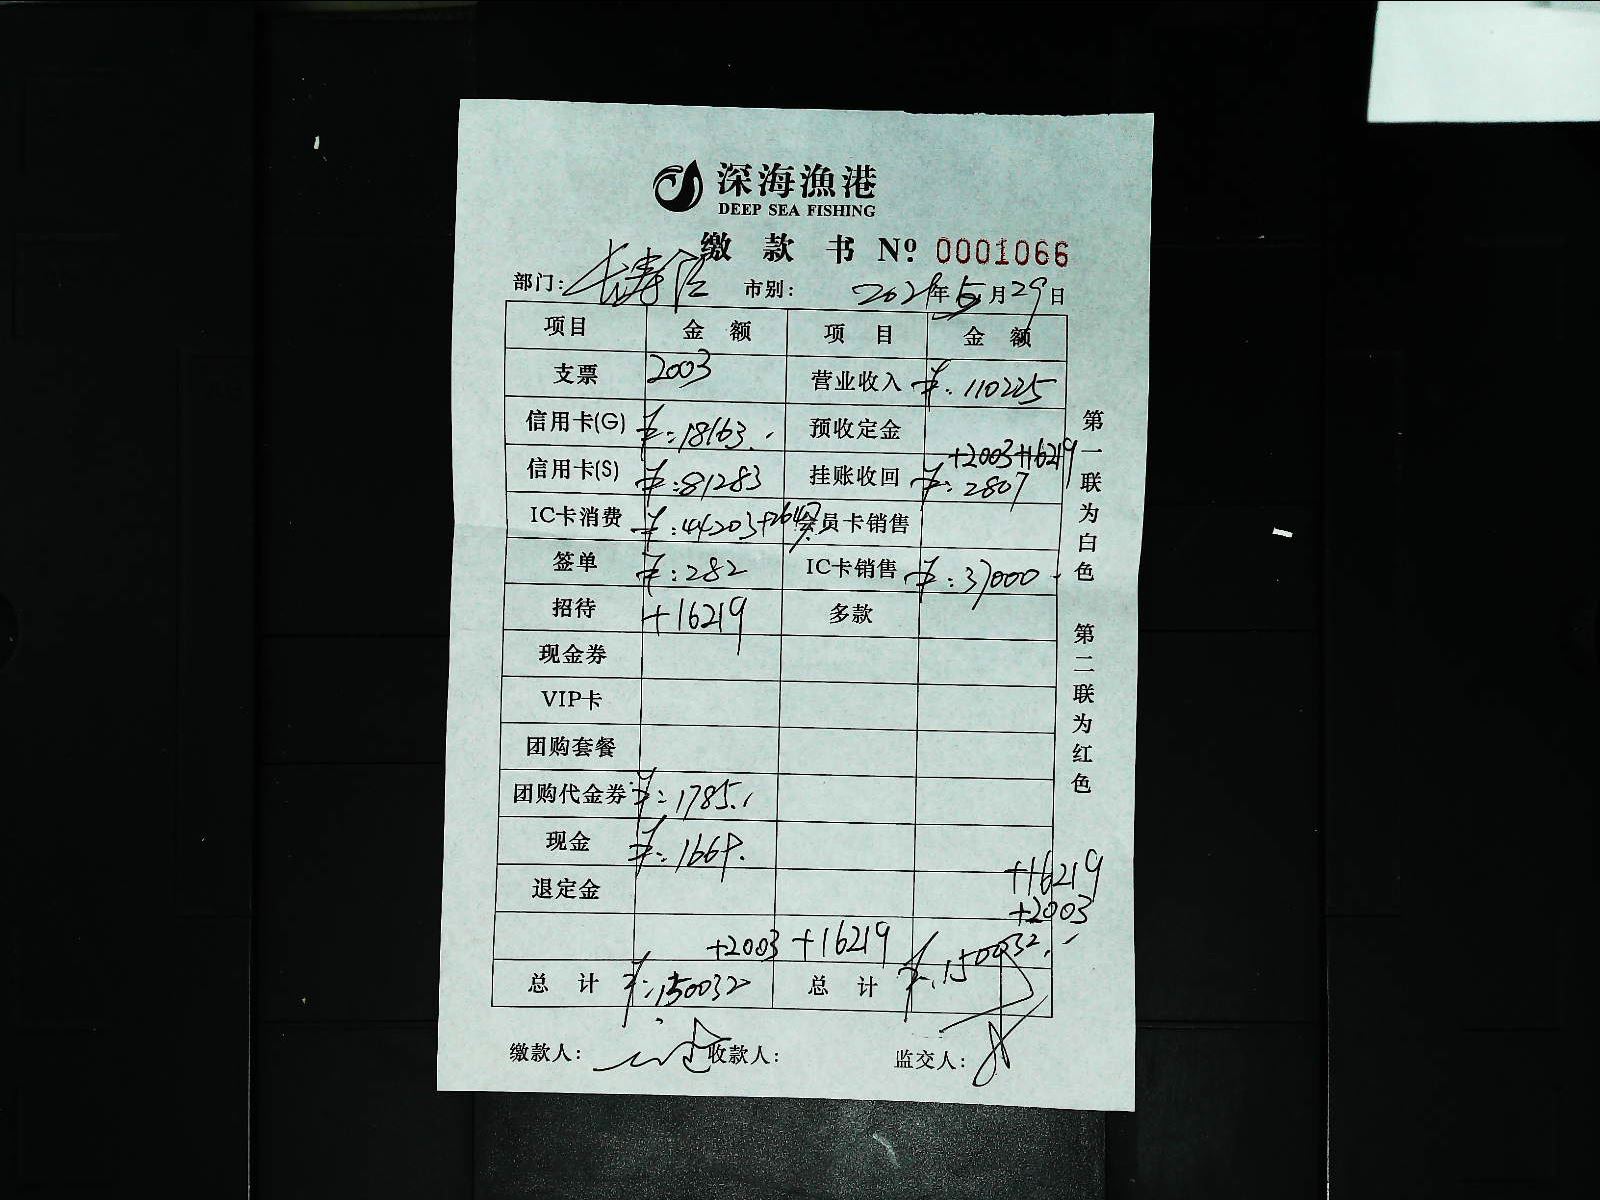 深海漁港
DEEP SEA FISHING
缴款书 Nº 0001066
部门: 长寿路 市别: 2021年5月29日
项目 金额 项目 金额
支票 2003 营业收入 ¥:110225
信用卡(G) ¥:18163. 预收定金
+2003+16219
信用卡(S) ¥:81283 挂账收回 ¥:2807
IC卡消费 ¥:44203+2647 会员卡销售
签单 ¥:282 IC卡销售 ¥:37000
招待 +16219 多款
现金券
VIP卡
团购套餐
团购代金券 ¥:1785.
现金 ¥:1669.
+16219
退定金
+2003
+2003 +16219
总计 ¥:150032 总计 ¥:150032.
缴款人: 收款人: 监交人:
第一联为白色
第二联为红色